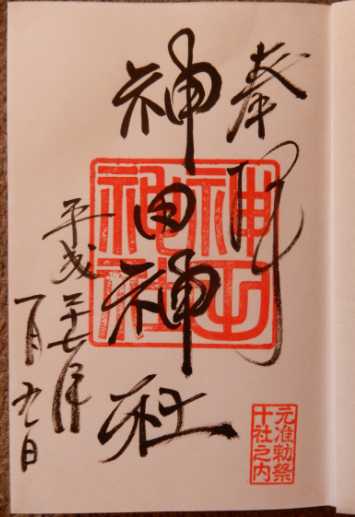 奉拝
神田神社
神田
神社
平成二十七年
一月九日
元准勅祭
十社之内